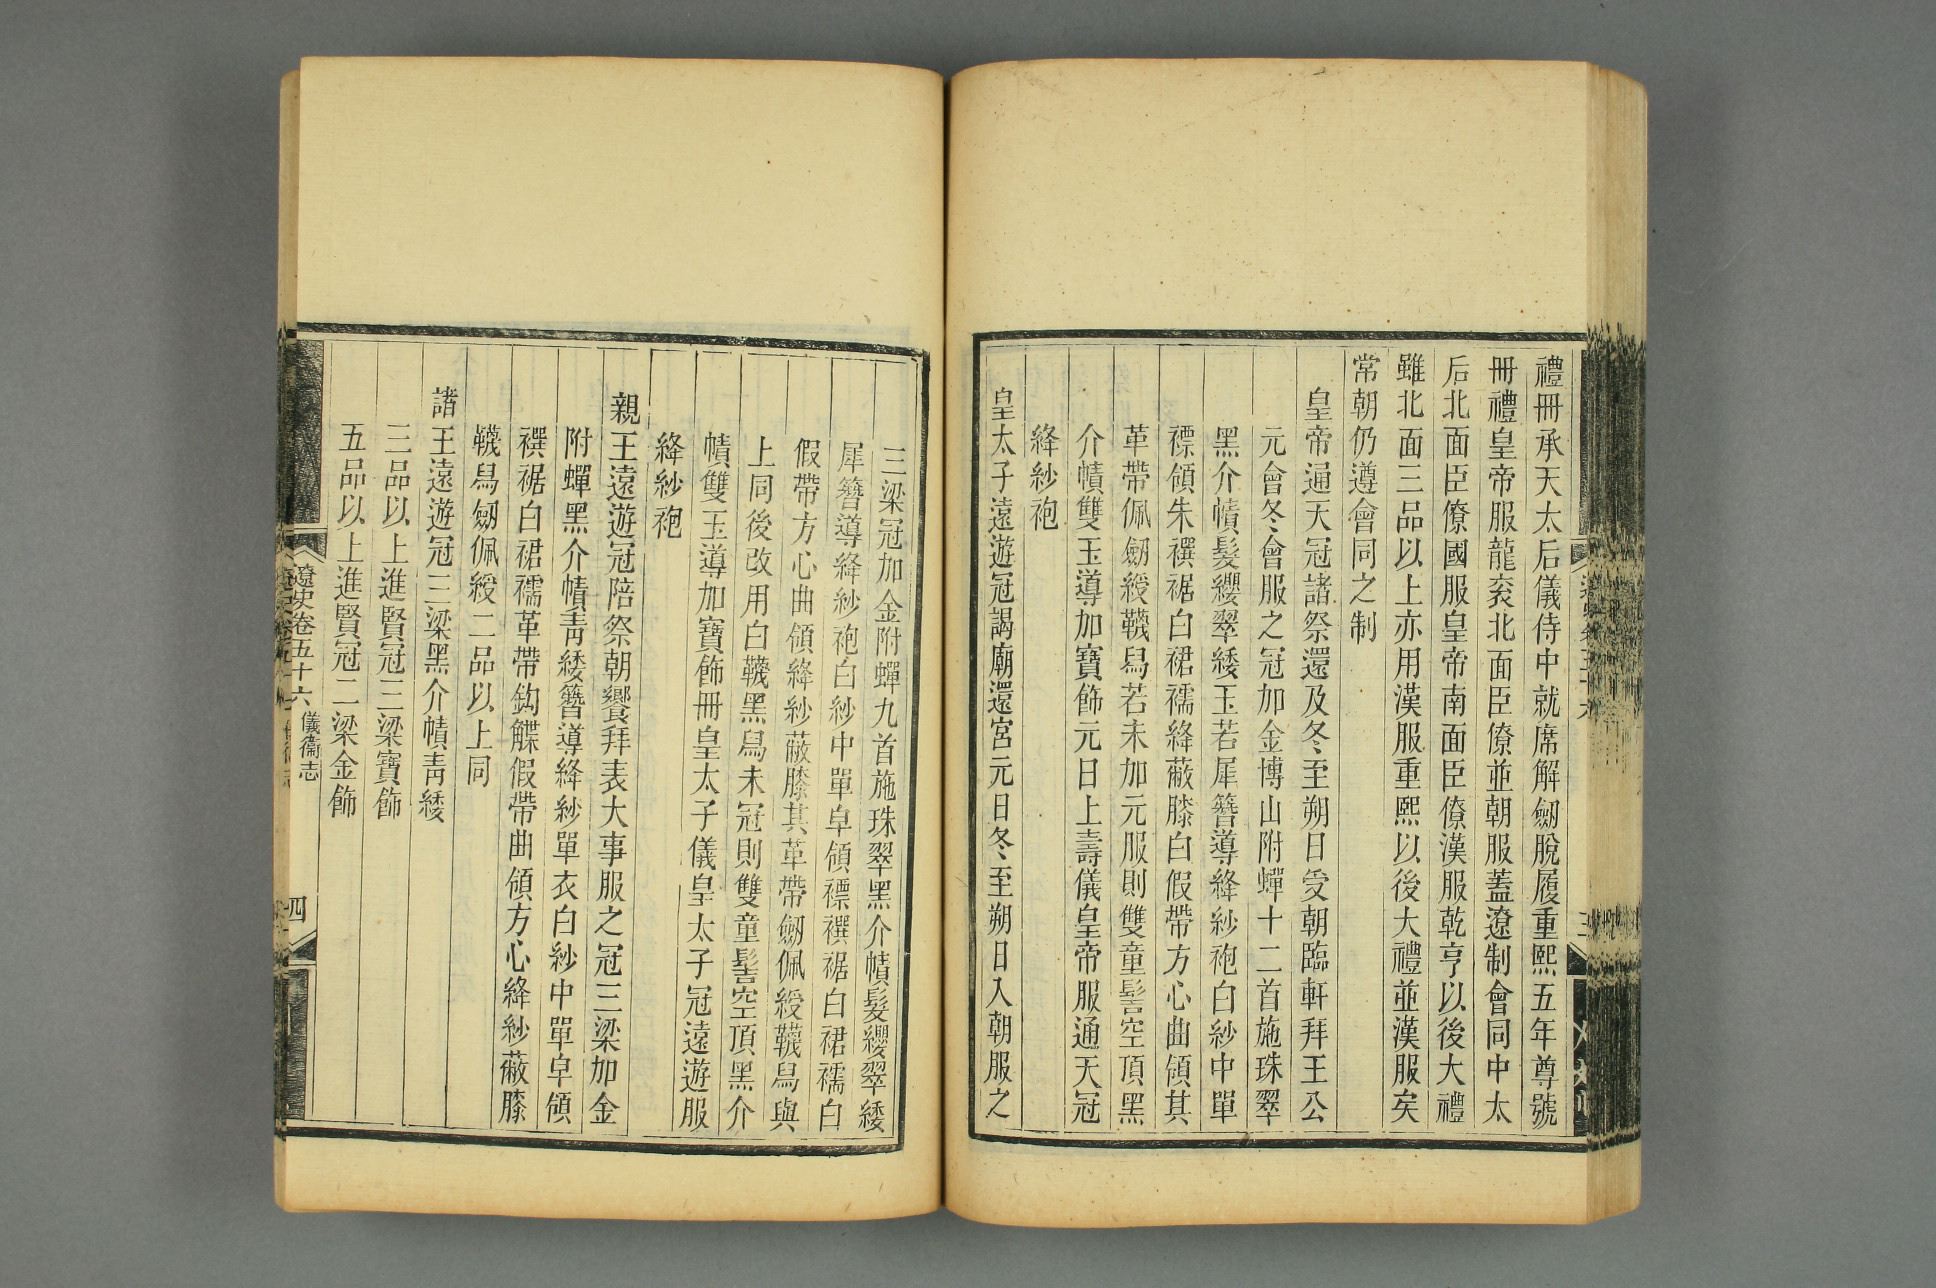 禮冊承天太后儀侍中就席解劒脫履重熙五年尊號
冊禮皇帝服龍衮北面臣僚並朝服蓋遼制會同中太
后北面臣僚國服皇帝南面臣僚漢服乾亨以後大禮
雖北面三品以上亦用漢服重熙以後大禮並漢服矣
常朝仍遵會同之制
皇帝通天冠諸祭還及冬至朔日受朝臨軒拜王公
元會冬會服之冠加金博山附蟬十二首施珠翠
黑介幘髮纓翠緌玉若犀簪導絳紗袍白紗中單
褾領朱襈裾白裙襦絳蔽膝白假帶方心曲領其
革帶佩劒綬韈舄若未加元服則雙童髻空頂黑
介幘雙玉導加寶飾元日上壽儀皇帝服通天冠
絳紗袍
皇太子遠遊冠謁廟還宮元日冬至朔日入朝服之
三梁冠加金附蟬九首施珠翠黑介幘髮纓翠緌
犀簪導絳紗袍白紗中單皁領褾襈裾白裙襦白
假帶方心曲領絳紗蔽膝其革帶劒佩綬韈舄與
上同後改用白韈黑舄未冠則雙童髻空頂黑介
幘雙玉導加寶飾冊皇太子儀皇太子冠遠遊服
絳紗袍
親王遠遊冠陪祭朝饗拜表大事服之冠三梁加金
附蟬黑介幘靑緌簪導絳紗單衣白紗中單皁領
襈裾白裙襦革帶鈎䚢假帶曲領方心絳紗蔽膝
韈舄劒佩綬二品以上同
諸王遠遊冠三梁黑介幘靑緌
三品以上進賢冠三梁寶飾
五品以上進賢冠二梁金飾
遼史卷五十六 儀衞志
四